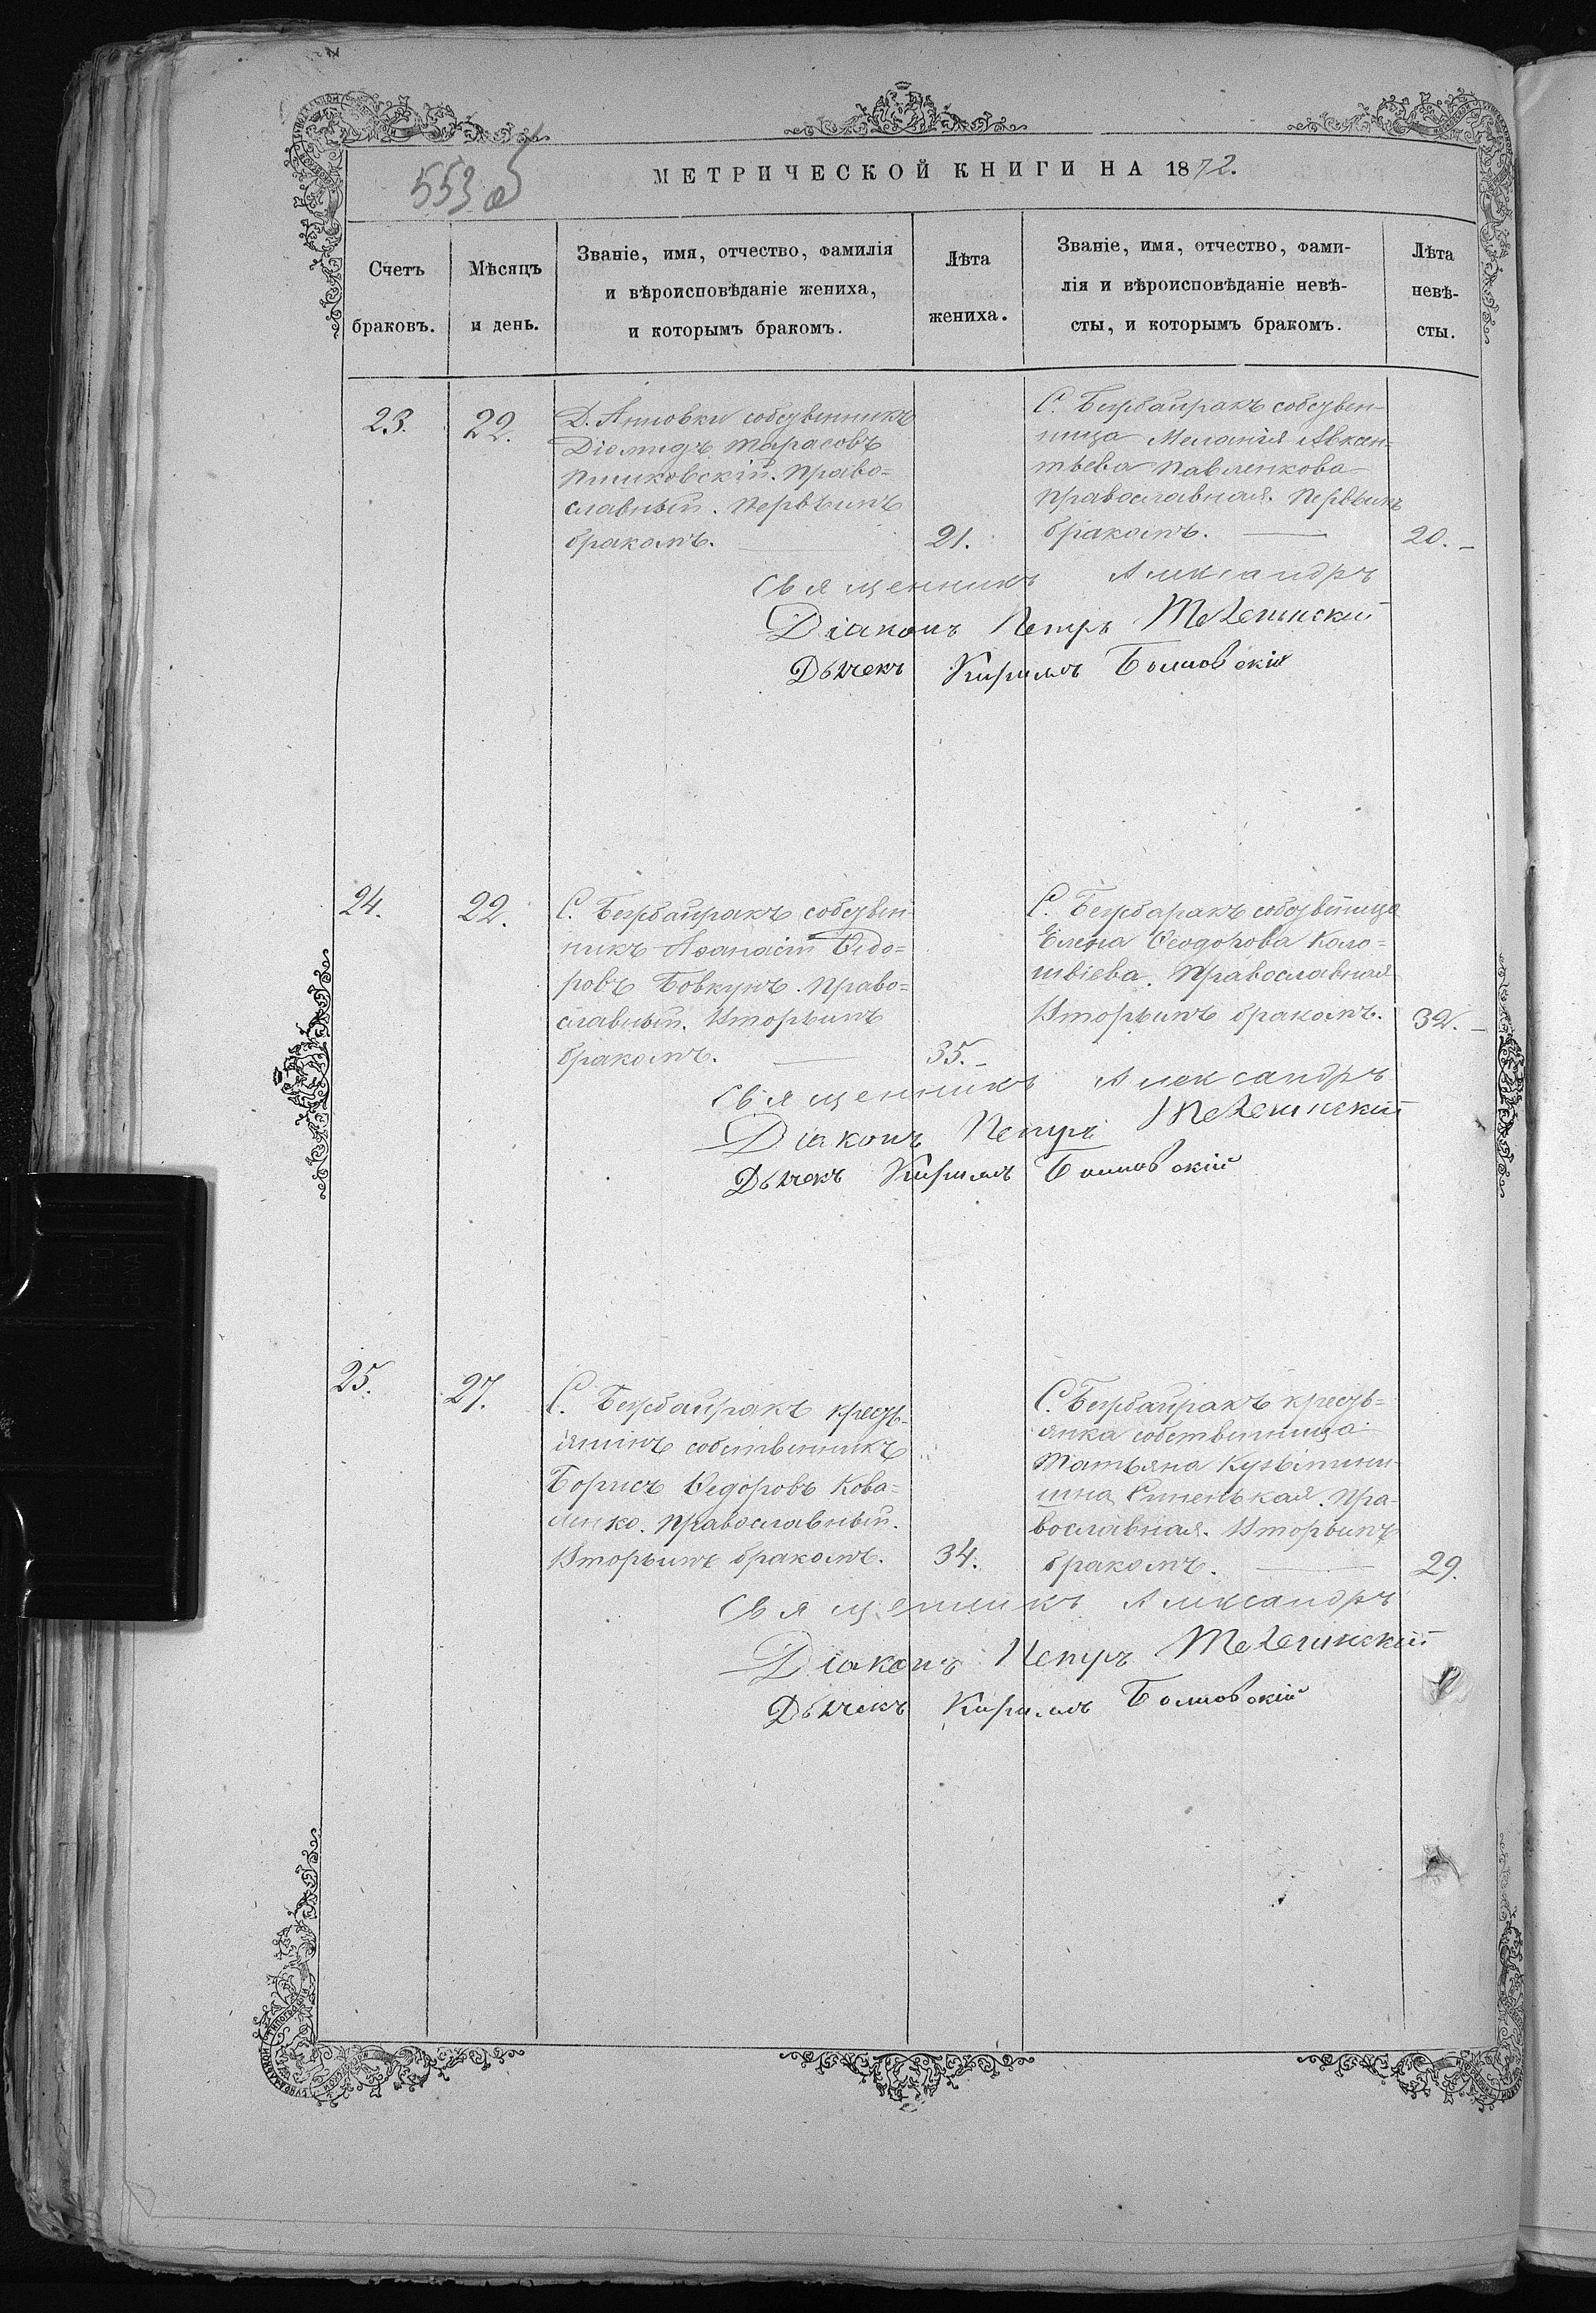 553 об
МЕТРИЧЕСКОЙ КНИГИ НА 1872.
Счетъ
браковъ.
Мѣсяцъ
и день.
Званіе, имя, отчество, фамилія
и вѣроисповѣданіе жениха,
и которымъ бракомъ.
Лѣта
жениха.
Званіе, имя, отчество, фами-
лія и вѣроисповѣданіе невѣ-
сты, и которымъ бракомъ.
Лѣта
невѣ-
сты.
23.
22.
Д. Анновки собственникъ
Діомидъ Тарасовъ
Православный
славный. Первымъ
бракомъ.
21.
С. Бирбайракъ собствен-
ница Меланія Авксен-
тьева Павленкова
Православная. Первымъ
бракомъ.
20.
Священникъ Александръ
Діаконъ Петръ
Дьячекъ Кириллъ
24.
22.
С. Бербайракъ собствен
никъ Аѳанасій Ѳедо-
ровъ Бовкунъ. Право-
славный. Вторымъ
бракомъ.
35.
С. Бербаракъ
Елена Ѳеодорова Коло-
Православная
Вторымъ бракомъ.
32.
Священникъ Александръ
Діаконъ Петръ
Дьячекъ Кириллъ
25.
27.
С. Бербайракъ кресть-
янинъ собственникъ
Борисъ Ѳедоровъ Кова-
ленко. Православный.
Вторымъ бракомъ.
34.
С. Бербайракъ кресть-
янка собственница
Татьяна
Пра-
вославная. Вторымъ
бракомъ.
29.
Священникъ Александръ
Діаконъ Петръ
Дьячекъ Кириллъ